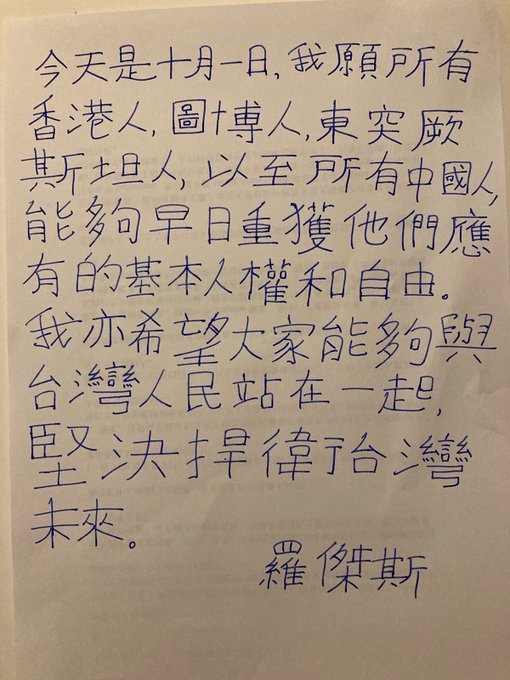 今天是十月一日,我願所有
香港人,圖博人,東突厥
斯坦人,以至所有中國人,
能夠早日重獲他們應
有的基本人權和自由。
我亦希望大家能夠與
台灣人民站在一起,
堅決捍衛台灣
未來。
羅傑斯